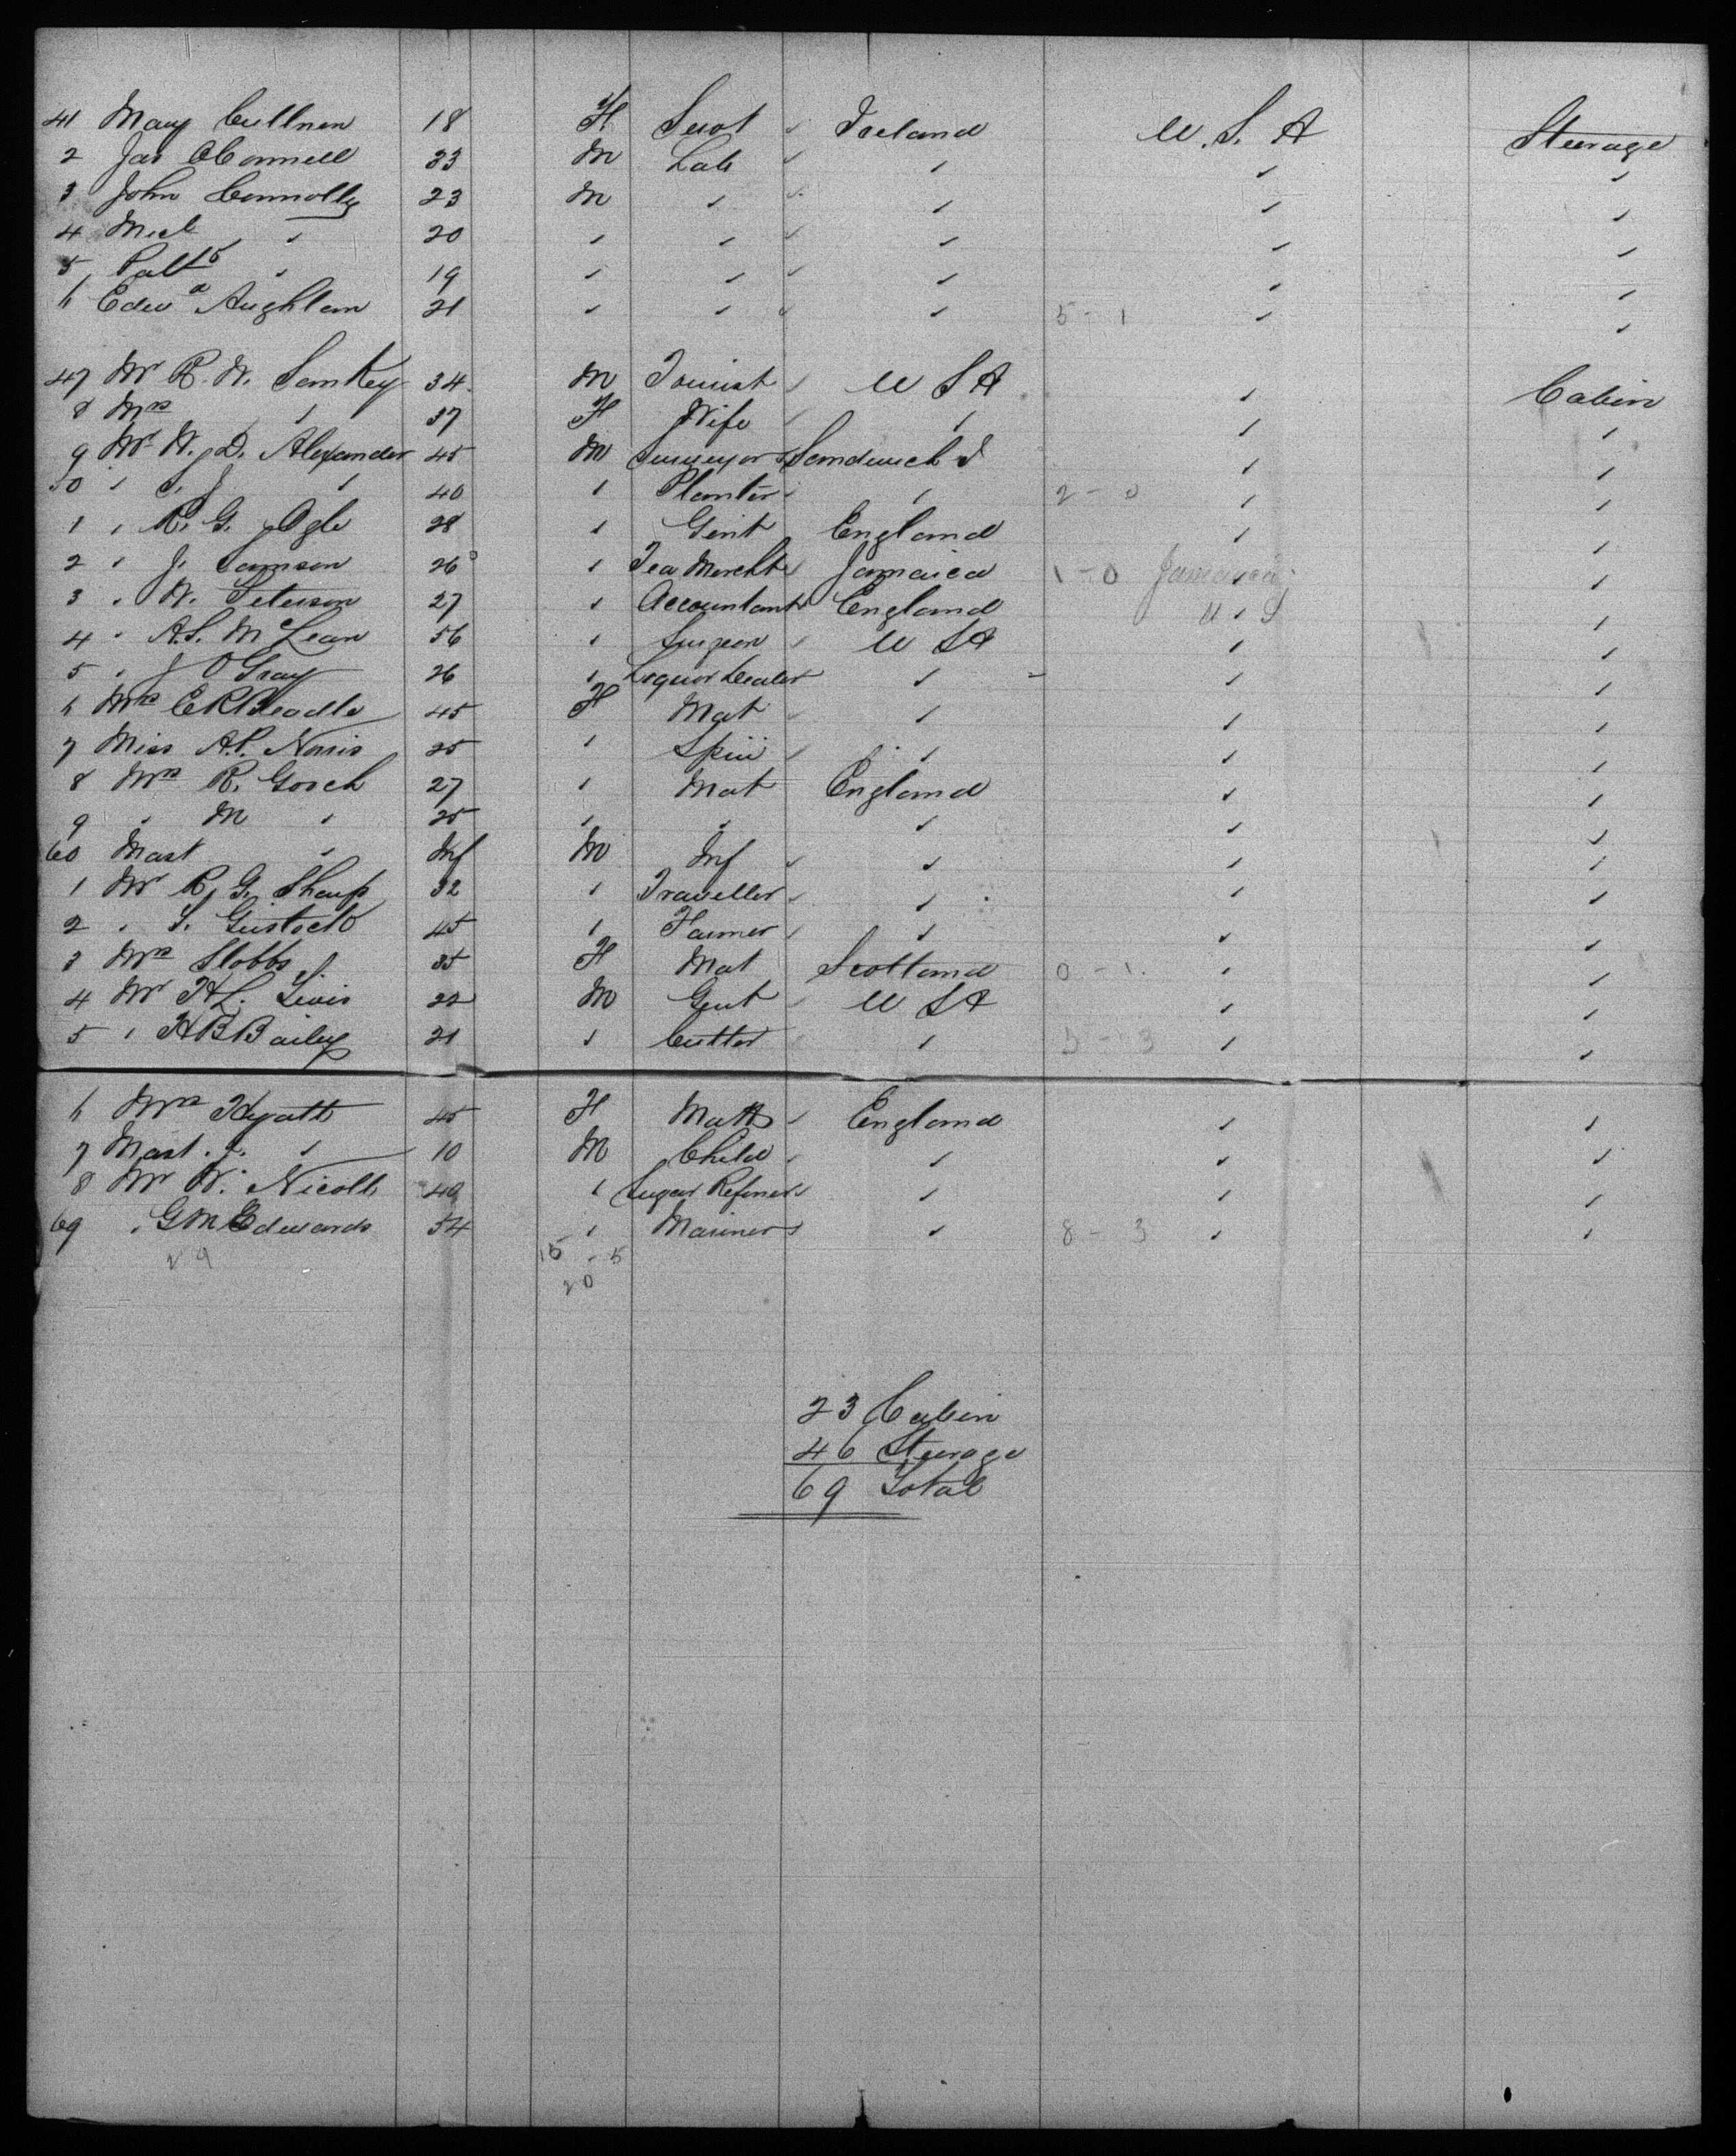 41 Mary Cullnen 18 F Serot Ireland U.S.A Steerage
2 Jas OConnell 33 M Lab " " "
3 John Connolly 23 M " " " "
4 Mich " 20 " " " " "
5 Patk " 19 " " " " "
6 Edwd Aughlan 21 " " " 5-1 " "
47 Mr R. W. Sankey 34 M Tourist U S A " Cabin
8 Mrs " 37 F Wife " " "
9 Mr W. D. Alexander 45 M Surveyor Sandwich I " "
50 " S. J " 40 " Planter " 2-0 " "
1 " R. G. Ogle 28 " Gent England " "
2 " J. Samson 26 " Tea Mercht Jamaica 1-0 Jamaica "
3 " W. Peterson 27 " Accountant England U S "
4 " A.S. McLean 56 " Surgeon U S A " "
5 " J OGray 26 " Liquor Dealer " - " "
6 Mrs E R Beadle 45 F Mat " " "
7 Miss A.P. Norris 25 " Spin " " "
8 Mrs R. Gooch 27 " Mat England " "
9 " M " 25 " " " " "
60 Mast " Inf M Inf " " "
1 Mr R. G. Sharp 32 " Traveller " " "
2 " S. 45 " Farmer " " "
3 Mrs Stobbs 35 F Mat Scotland 0-1 " "
4 Mr H L. Lewis 22 M Gent U S A " "
5 " H B Bailey 21 " Cutter " 3-3 " "
6 Mrs Hyatt 45 F Matt England " "
7 Mast. J. " 10 M Child " " "
8 Mr W. Nicoll 40 " Sugar Refiner " " "
69 " G M Edwards 54 " Mariner " 8-3 " "
29 15-5
20
23 Cabin
46 Steerage
69 Total